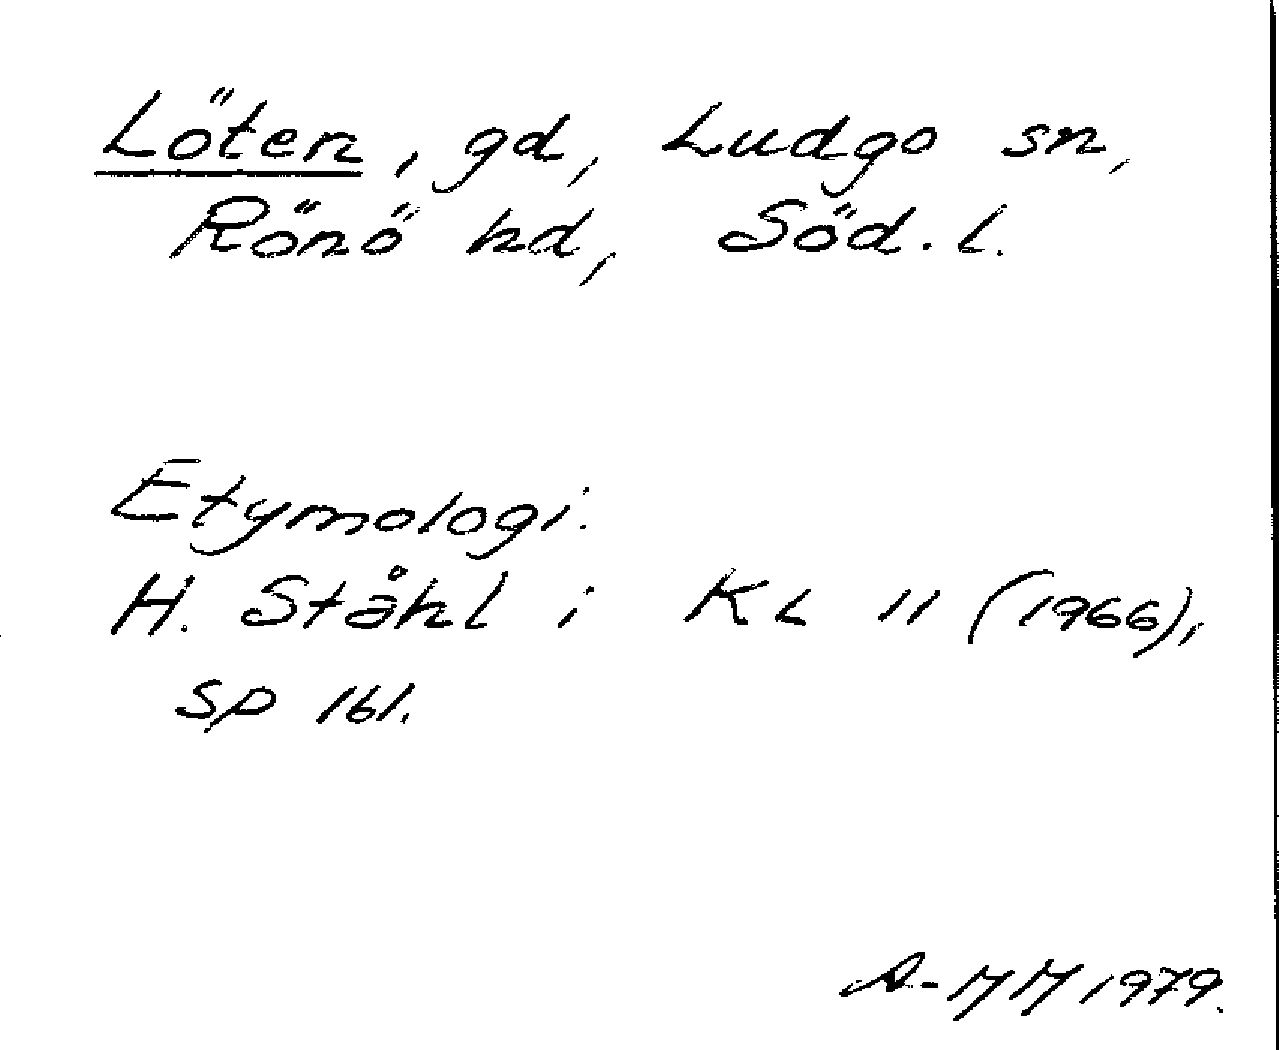 Löten, gd, Ludgo sn,
Rönö hd, Söd. l.
Etymologi:
H. Ståhl i KL 11 (1966),
sp 161.
A-MM 1979.